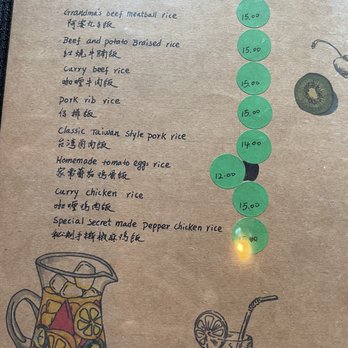 Grandma's beef meatball rice 15.00
Beef and potato Braised rice 15.00
红烧牛腩饭
Curry beef rice 15.00
咖喱牛肉饭
Pork rib rice 15.00
排饭
Classic Taiwan style pork rice 14.00
台湾卤肉饭
Homemade tomato eggs rice 12.00
家常蕃茄鸡蛋饭
Curry chicken rice 15.00
咖喱鸡肉饭
Special Secret made Pepper chicken rice
秘制手撕椒麻鸡饭